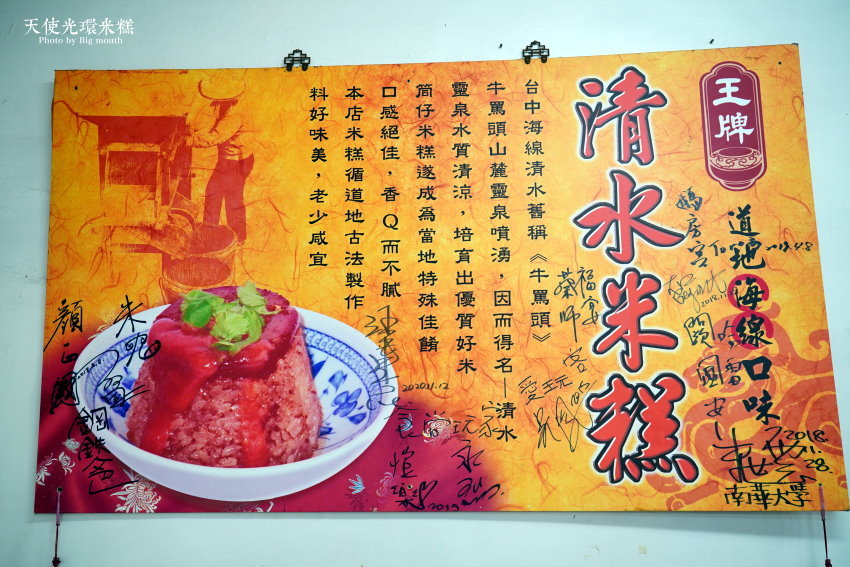 天使光環米糕
Photo by Big mouth
王牌
道地海線口味
清水米糕
台中海線清水舊稱《牛罵頭》
牛罵頭山麓靈泉噴湧，因而得名—清水
靈泉水質清涼，培育出優質好米
筒仔米糕遂成為當地特殊佳餚
口感絕佳，香Q而不膩
本店米糕循道地古法製作
料好味美，老少咸宜
福宴
蔡師
愛玩客
2018.11.28.
南華大學
2020.11.12
鋼鐵